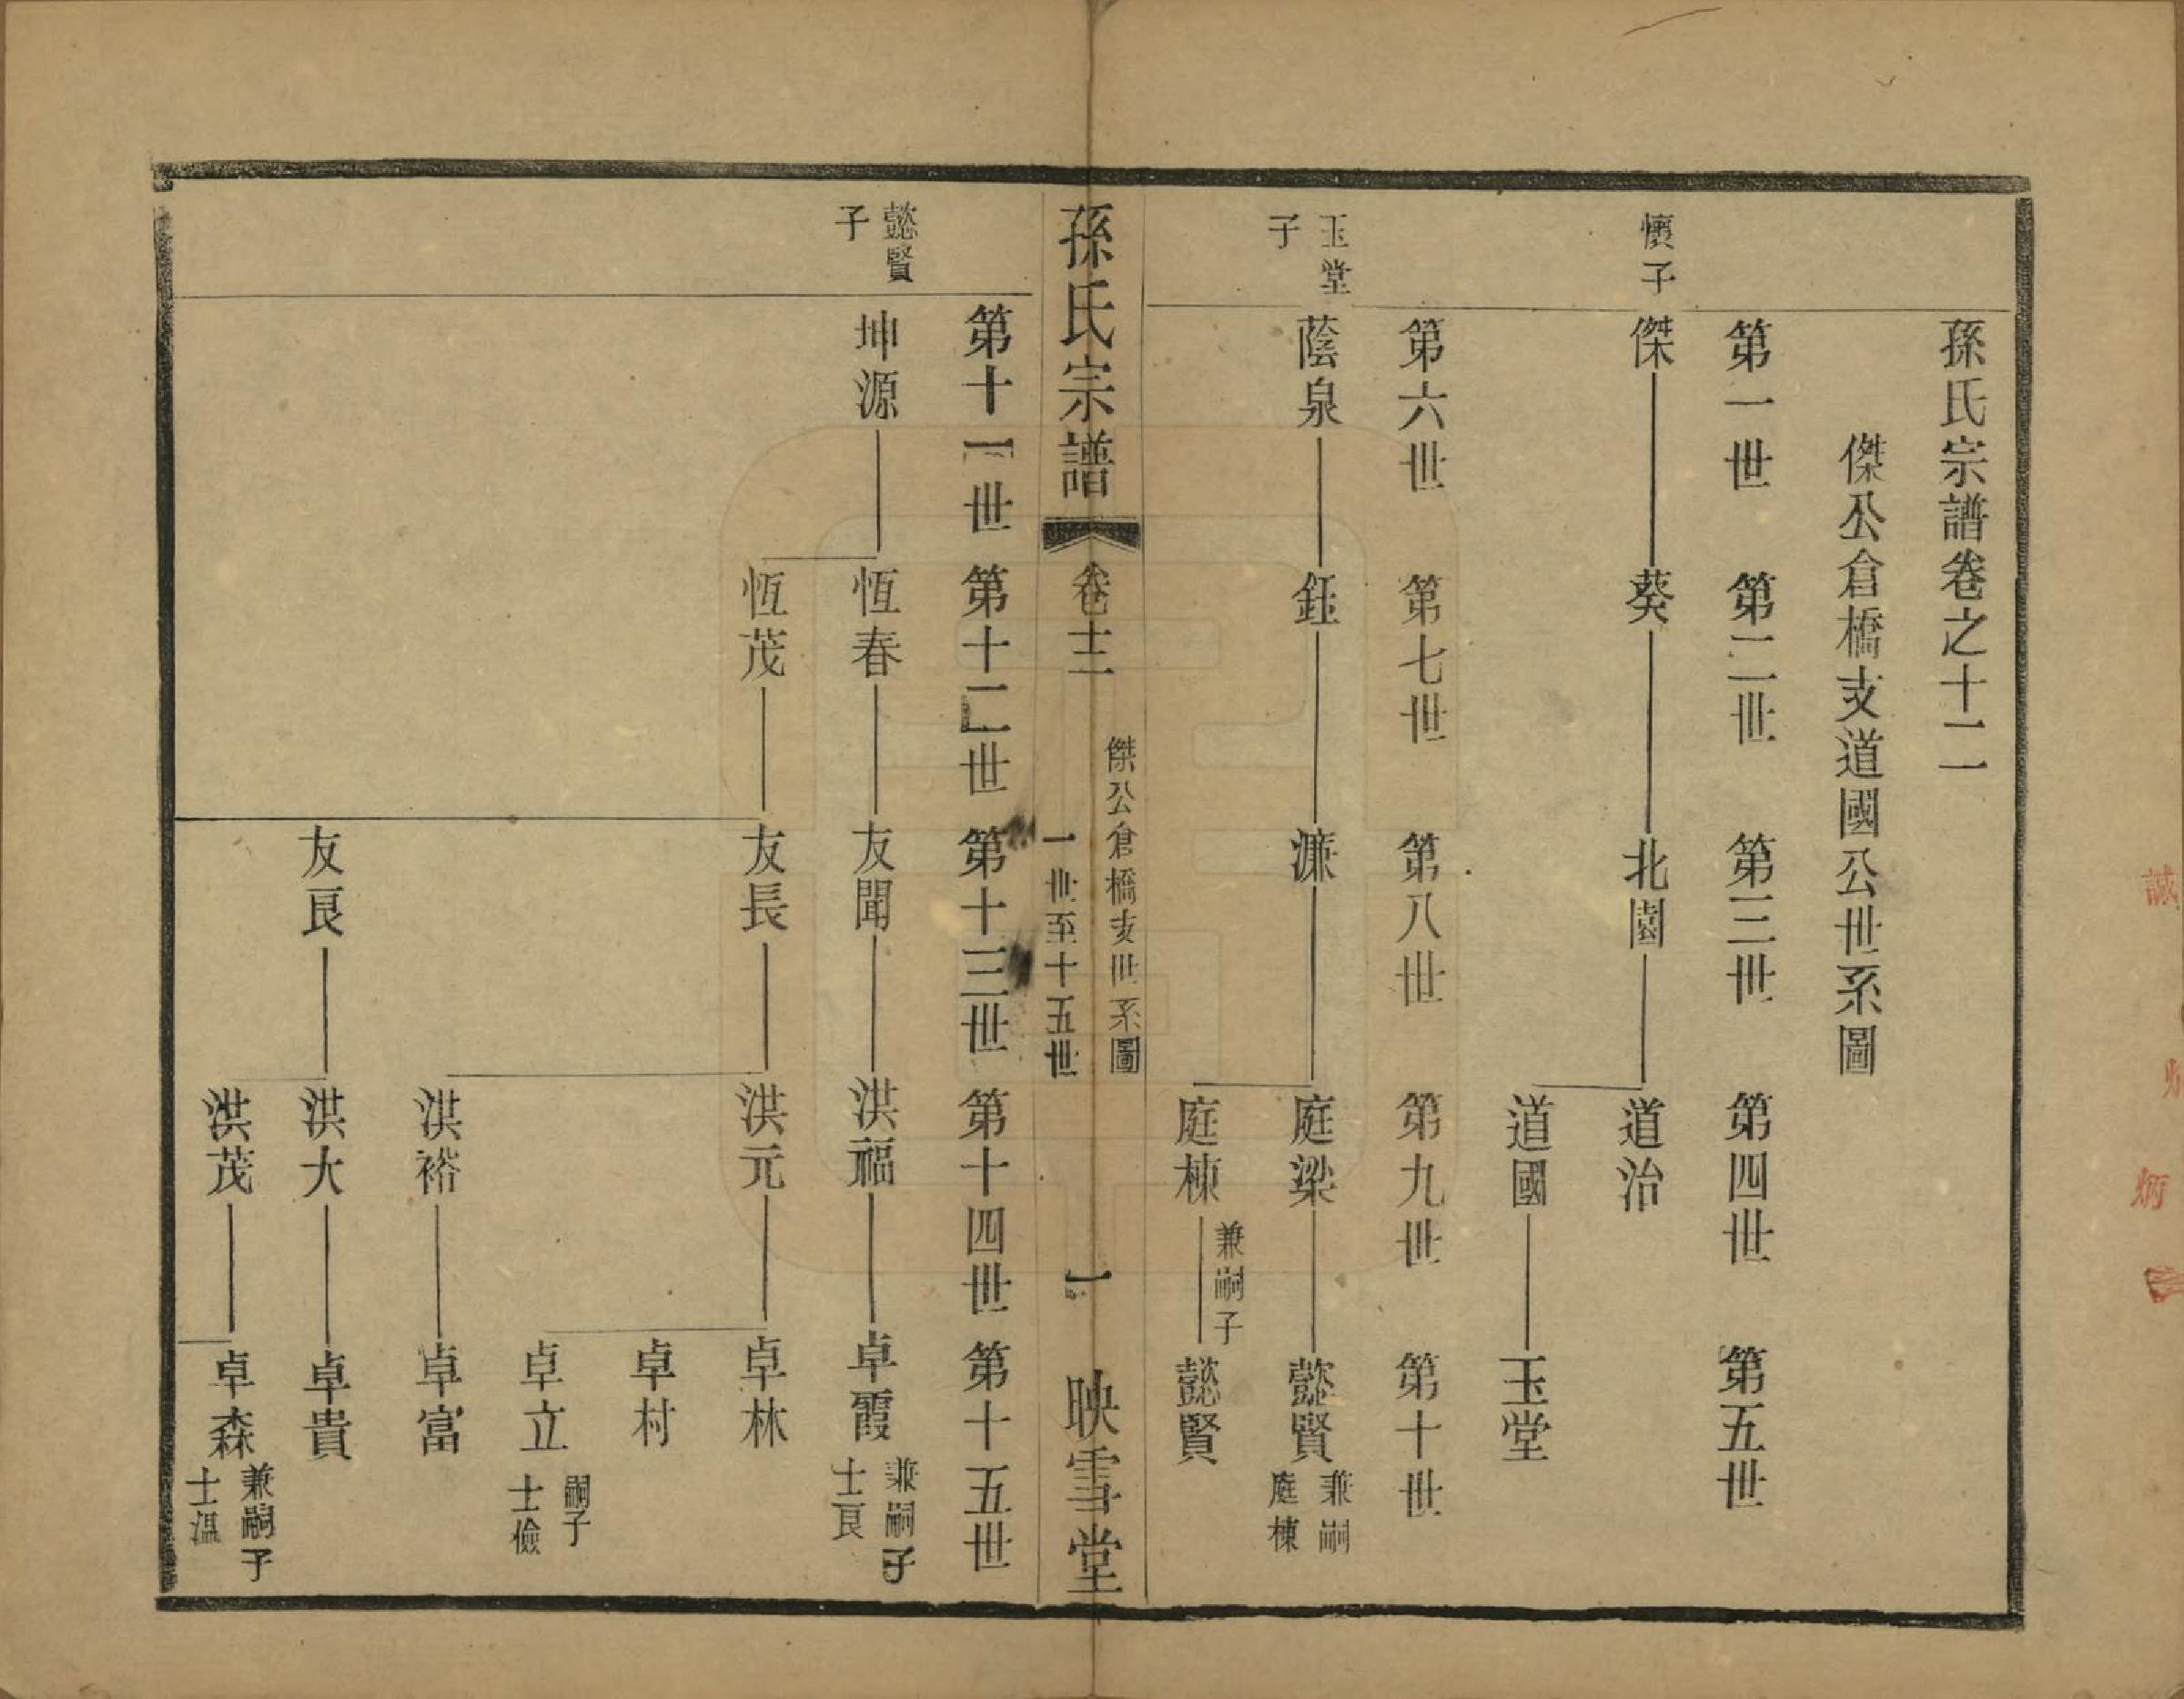 孫氏宗譜卷之十二
傑公倉橋支道國公世系圖
第一世　第二世　第三世　第四世　第五世
懷子
傑　葵　北園　道治
道國　玉堂
第六世　第七世　第八世　第九世　第十世
玉堂子
蔭泉　鈺　濂　庭梁　懿賢　兼嗣庭棟
庭棟　兼嗣子　懿賢
孫氏宗譜　卷十二　傑公倉橋支世系圖　一世至十五世　一　映雪堂
第十一世　第十二世　第十三世　第十四世　第十五世
懿賢子
坤源　恆春　友聞　洪福　卓霞　兼嗣子士良
恆茂　友長　洪元　卓林
卓村
卓立　嗣子士儉
洪裕　卓富
友良　洪大　卓貴
洪茂　卓森　兼嗣子士溫
誠
炳